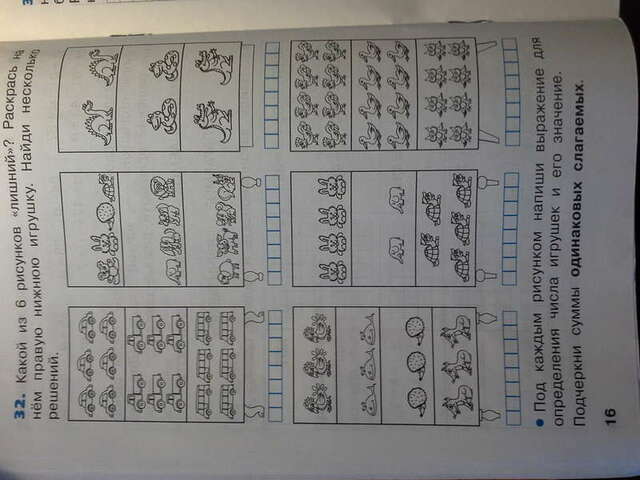 32. Какой из 6 рисунков «лишний»? Раскрась на
нём правую нижнюю игрушку. Найди несколько
решений.
• Под каждым рисунком напиши выражение для
определения числа игрушек и его значение.
Подчеркни суммы одинаковых слагаемых.
16